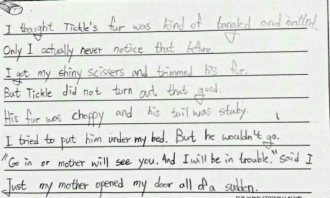 I thought Tickle's fur was kind of tangled and
Only I actually never notice that
I get my shiny scissers and trimmed his fur.
But Tickle did not turn out that good.
His fur was choppy and his tail was
I tried to put him under my bed. But he wouldn't go.
"Go in or mother will see you. And I will be in trouble." said I
Just my mother opened my door all of a sudden.